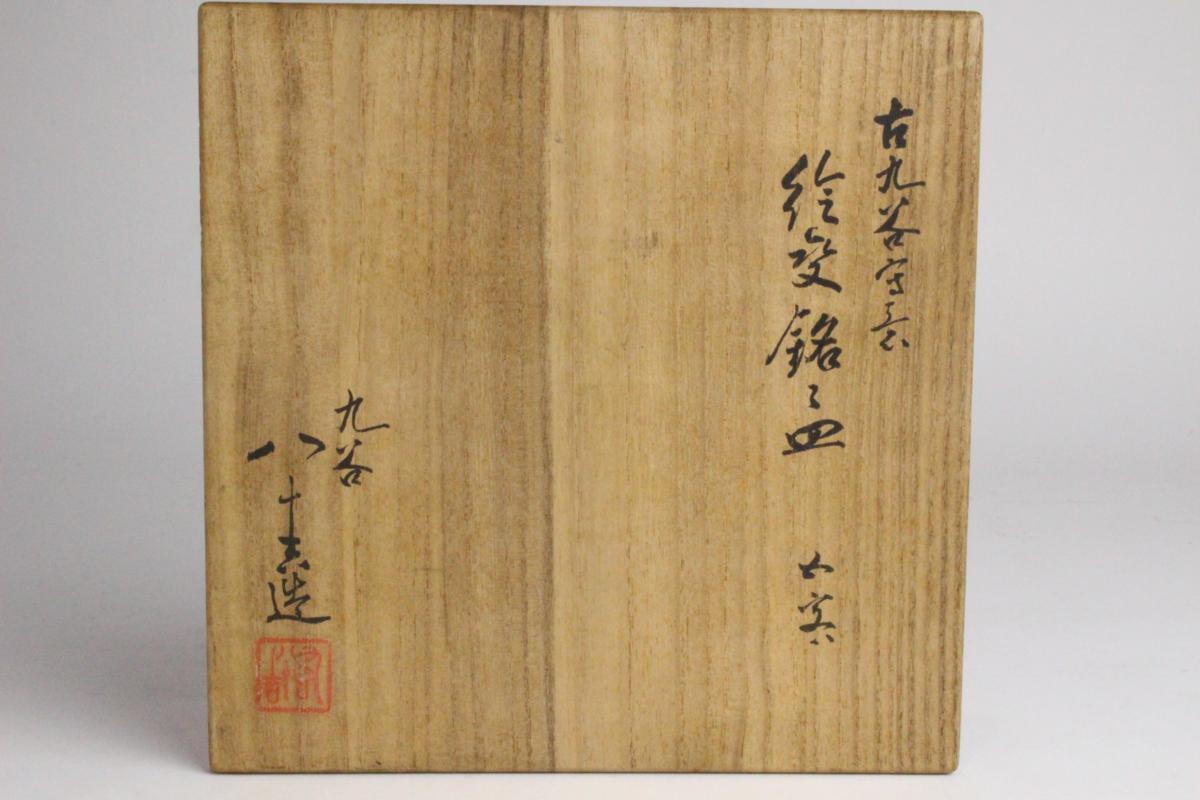 古九谷写意
絵変銘々皿
五客
九谷
八十吉造